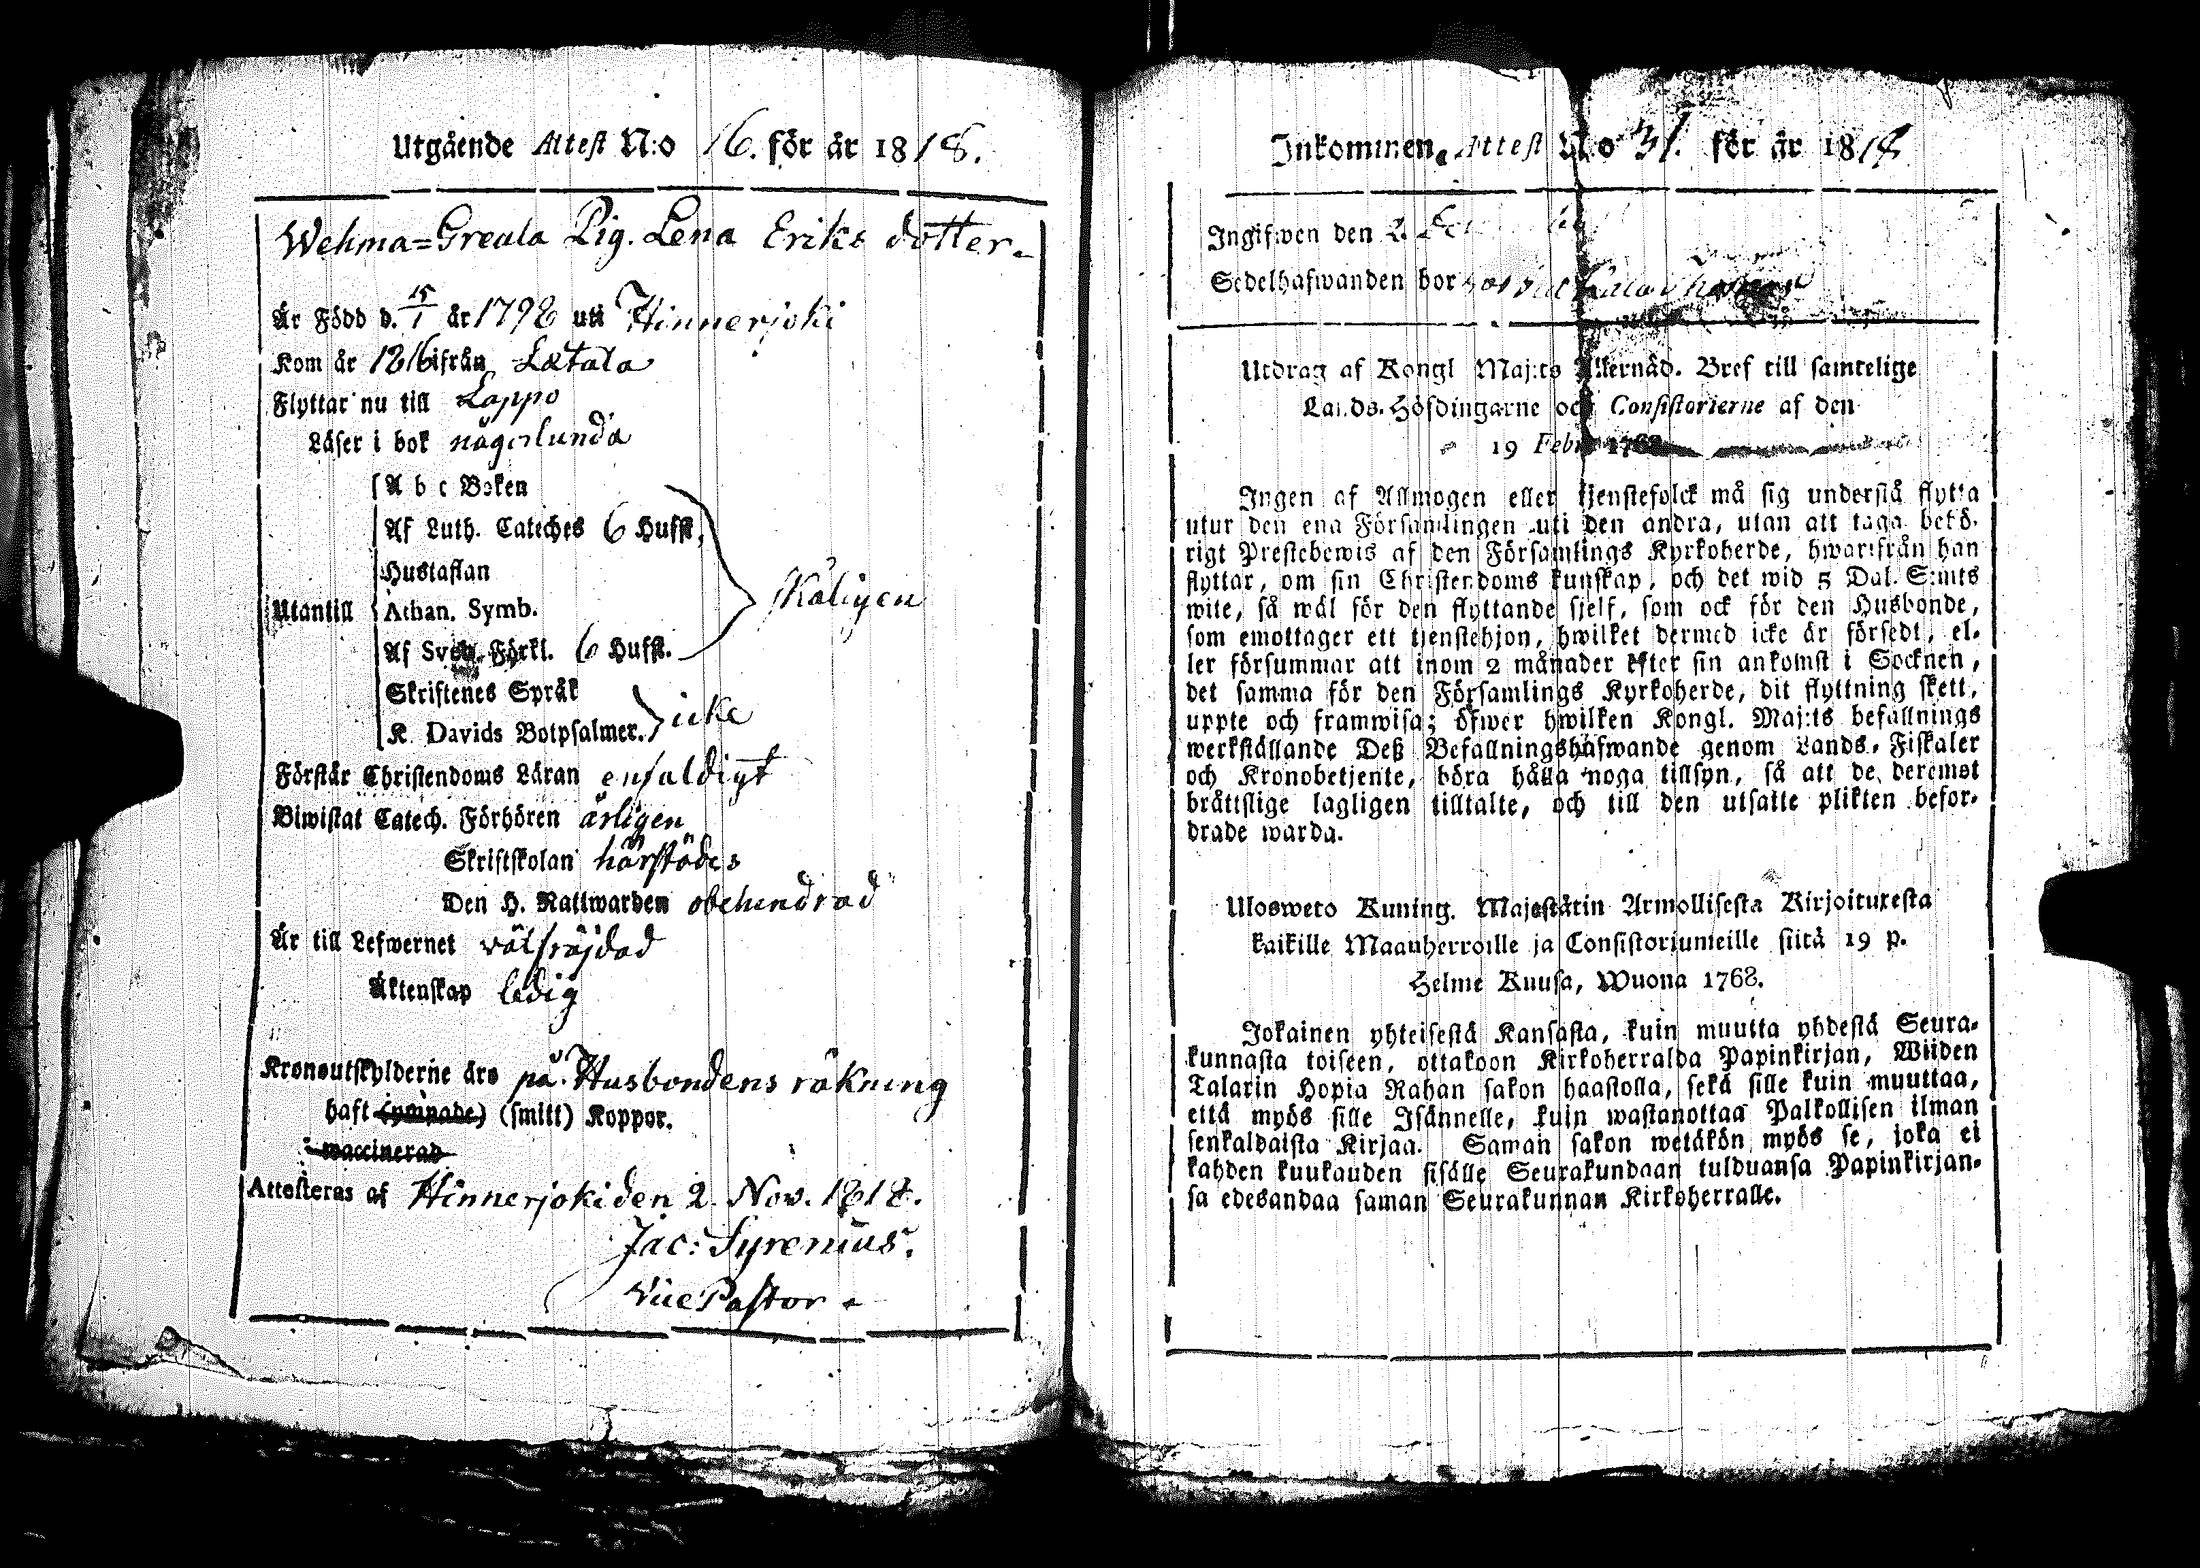 Utgående Attest N:o 16. för år 1818.
Wehma=Greula Pig. Lena Eriks dotter.
Är Född d. 15/1 år 1798 uti Hinnerjoki
Kom år 1816 ifrån Letala
Flyttar nu till Lappo
Läser i bok någorlunda
A b c Boken
Af Luth. Cateches 6 Hufst.
Hustaflan
Utantill Athan. Symb. skäligen
Af Sveb. Förkl. 6 Hufst.
Skriftenes Språk
K. Davids Botpsalmer. icke
Förstår Christendoms Läran enfaldigt
Biwistat Catech. Förhören årligen
Skriftskolan härstädes
Den H. Nattwarden obehindrad
Är till Lefwernet välfräjdad
Äktenskap ledig
Kronoutskylderne äro på Husbondens räkning
haft (ympade) (smitt) Koppor.
waccinerad
Attesteras af Hinnerjoki den 2. Nov. 1818.
Jac: Syrenius.
Vice Pastor
Inkommen Attest N:o 31. för år 1818
Ingifwen den 2.
Sedelhafwanden bor
Utdrag af Kongl Maj:ts Allernåd. Bref till samtelige
Lands-Höfdingarne och Consistorierne af den
19 Febr. 1768
Ingen af Allmogen eller tjenstefolck må sig understå flytta
utur den ena Församlingen uti den andra, utan att taga behö-
rigt Prestebewis af den Församlings Kyrkoherde, hwarifrån han
flyttar, om sin Christendoms kunskap, och det wid 5 Dal. S:mts
wite, så wäl för den flyttande sjelf, som ock för den Husbonde,
som emottager ett tjenstehjon, hwilket dermed icke är försedt, el-
ler försummar att inom 2 månader efter sin ankomst i Socknen,
det samma för den Församlings Kyrkoherde, dit flyttning skett,
uppte och framwisa; öfwer hwilken Kongl. Maj:ts befallnings
werkställande Deß Befallningshafwande genom Lands-Fiskaler
och Kronobetjente, böra hålla noga tillsyn, så att de deremot
bråttslige lagligen tilltalte, och till den utsatte plikten befor-
drade warda.
Ulosweto Kuning. Majestätin Armollisesta Kirjoituxesta
kaikille Maanherroille ja Consistoriumeille siitä 19 p.
Helme Kuusa, Wuona 1768.
Jokainen yhteisestä Kansasta, kuin muutta yhdestä Seura-
kunnasta toiseen, ottakoon Kirkoherralda Papinkirjan, Wiiden
Talarin Hopia Rahan sakon haastolla, sekä sille kuin muuttaa,
että myös sille Isännelle, kuin wastanottaa Palkollisen ilman
senkaldaista Kirjaa. Saman sakon wetäkön myös se, joka ei
kahden kuukauden sisälle Seurakundaan tulduansa Papinkirjan-
sa edesandaa saman Seurakunnan Kirkoherralle.